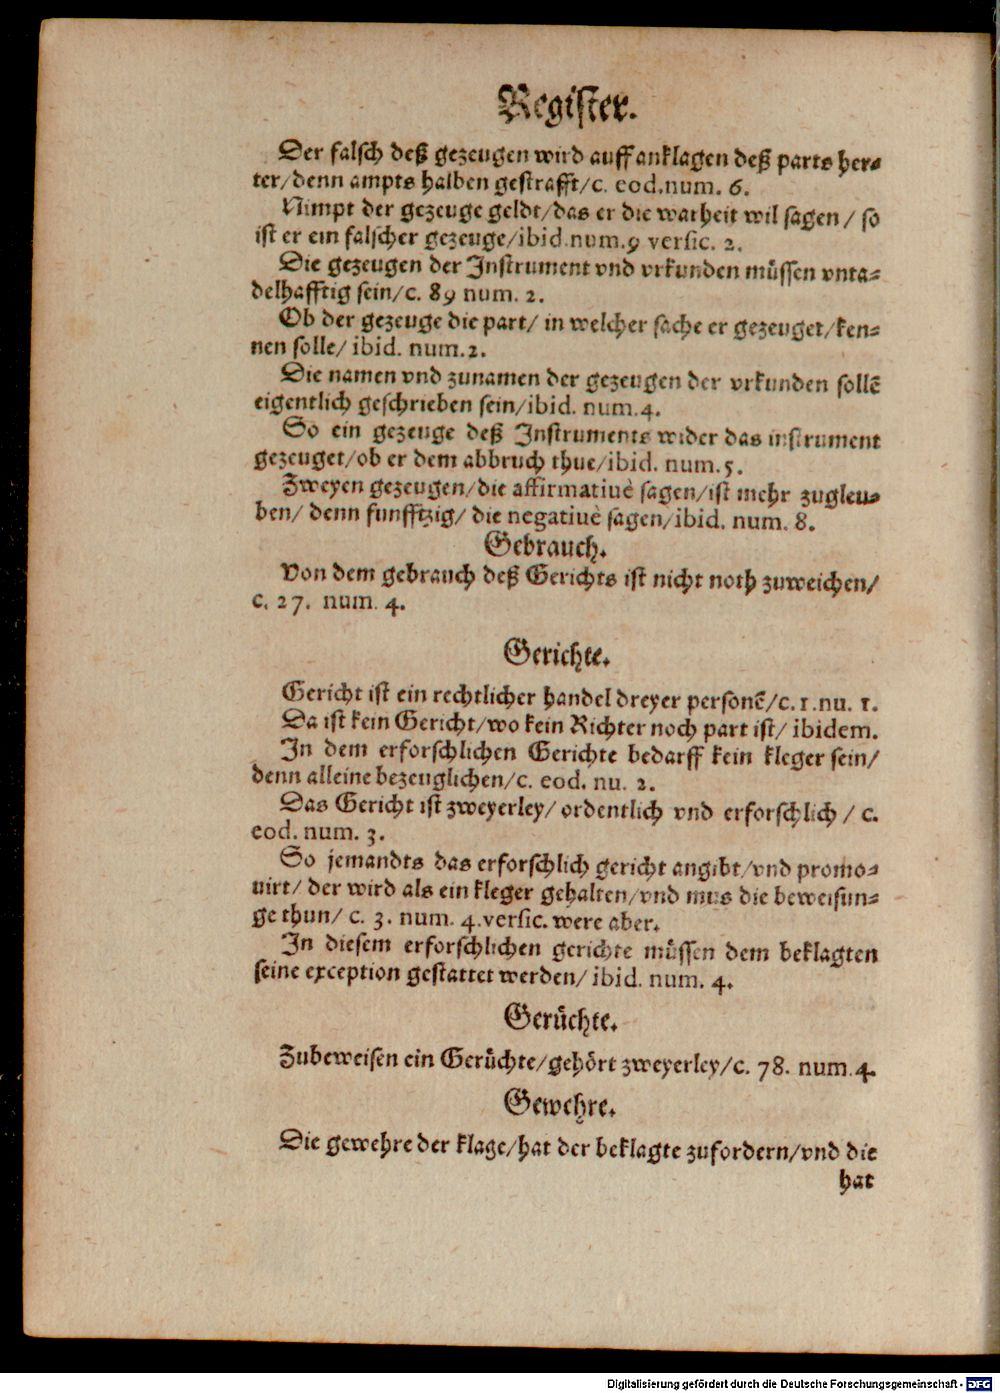 Register.
Der falsch deß gezeugen wird auff anklagen deß parts her-
ter/denn ampts halben gestrafft/c. eod.num. 6.
Nimpt der gezeuge geldt/das er die warheit wil sagen / so
ist er ein falscher gezeuge/ibid.num.9 versic. 2.
Die gezeugen der Instrument vnd vrkunden müssen vnta-
delhafftig sein/c. 89 num. 2.
Ob der gezeuge die part/ in welcher sache er gezeuget/ken-
nen solle/ ibid. num.2.
Die namen vnd zunamen der gezeugen der vrkunden sollē
eigentlich geschrieben sein/ibid. num.4.
So ein gezeuge deß Instruments wider das instrument
gezeuget/ob er dem abbruch thue/ibid. num.5.
Zweyen gezeugen/die affirmatiuè sagen/ist mehr zugleu-
ben/ denn funfftzig/ die negatiuè sagen/ibid. num. 8.
Gebrauch.
Von dem gebrauch deß Gerichts ist nicht noth zuweichen/
c. 27. num. 4.
Gerichte.
Gericht ist ein rechtlicher handel dreyer personē/c.1.nu. 1.
Da ist kein Gericht/wo kein Richter noch part ist/ ibidem.
In dem erforschlichen Gerichte bedarff kein kleger sein/
denn alleine bezeuglichen/c. eod. nu. 2.
Das Gericht ist zweyerley/ ordentlich vnd erforschlich / c.
eod. num. 3.
So jemandts das erforschlich gericht angibt/vnd promo-
uirt/ der wird als ein kleger gehalten/vnd mus die beweisun-
ge thun/ c. 3. num. 4.versic. were aber.
In diesem erforschlichen gerichte müssen dem beklagten
seine exception gestattet werden/ ibid. num. 4.
Gerüchte.
Zubeweisen ein Gerüchte/gehört zweyerley/c. 78. num.4.
Gewehre.
Die gewehre der klage/hat der beklagte zufordern/vnd die
hat
Digitalisierung gefördert durch die Deutsche Forschungsgemeinschaft - DFG